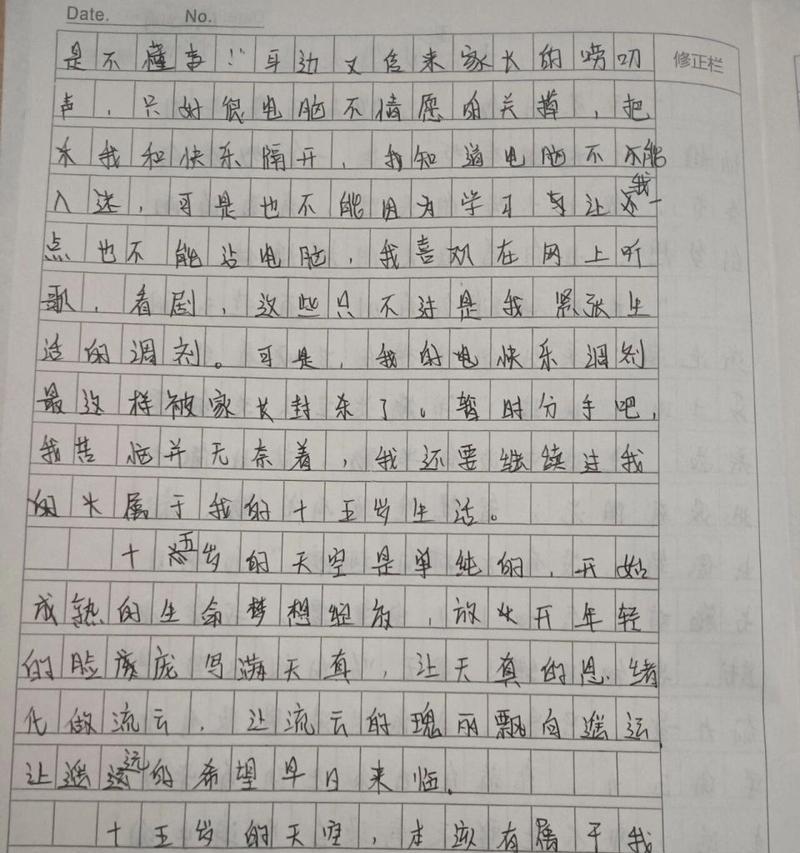 Date. No.
修正栏
是不懂事!"耳边又传来家长的唠叨
声,只好很电脑不情愿的关掉,把
我和快乐隔开,我知道电脑不能
入迷,可是也不能因为学习就让我一
点也不能沾电脑,我喜欢在网上听
歌,看剧,这些只不过是我紧张生
活的调剂。可是,我的电快乐调剂
最这样被家长封杀了。暂时分手吧,
我苦恼并无奈着,我还要继续过我
的 属于我的十五岁生活。
十五岁的天空是单纯的,开始
成熟的生命梦想绽放,放 开年轻
的脸 庞写满天真,让天真的思绪
化做流云,让流云的瑰丽飘向遥远
让遥远的希望早日来临.
十五岁的天空,本该有属于我